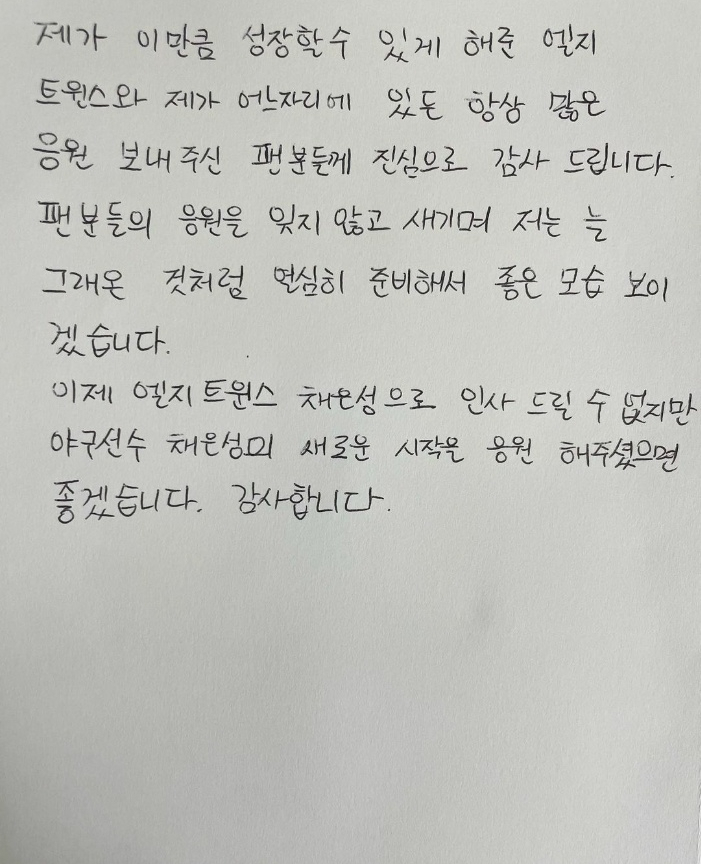 제가 이만큼 성장할 수 있게 해준 엘지
트윈스와 제가 어느자리에 있든 항상 많은
응원 보내 주신 팬분들께 진심으로 감사 드립니다.
팬분들의 응원을 잊지 않고 새기며 저는 늘
그래온 것처럼 열심히 준비해서 좋은 모습 보이
겠습니다.
이제 엘지 트윈스 채은성으로 인사 드릴 수 없지만
야구선수 채은성의 새로운 시작은 응원 해주셨으면
좋겠습니다. 감사합니다.